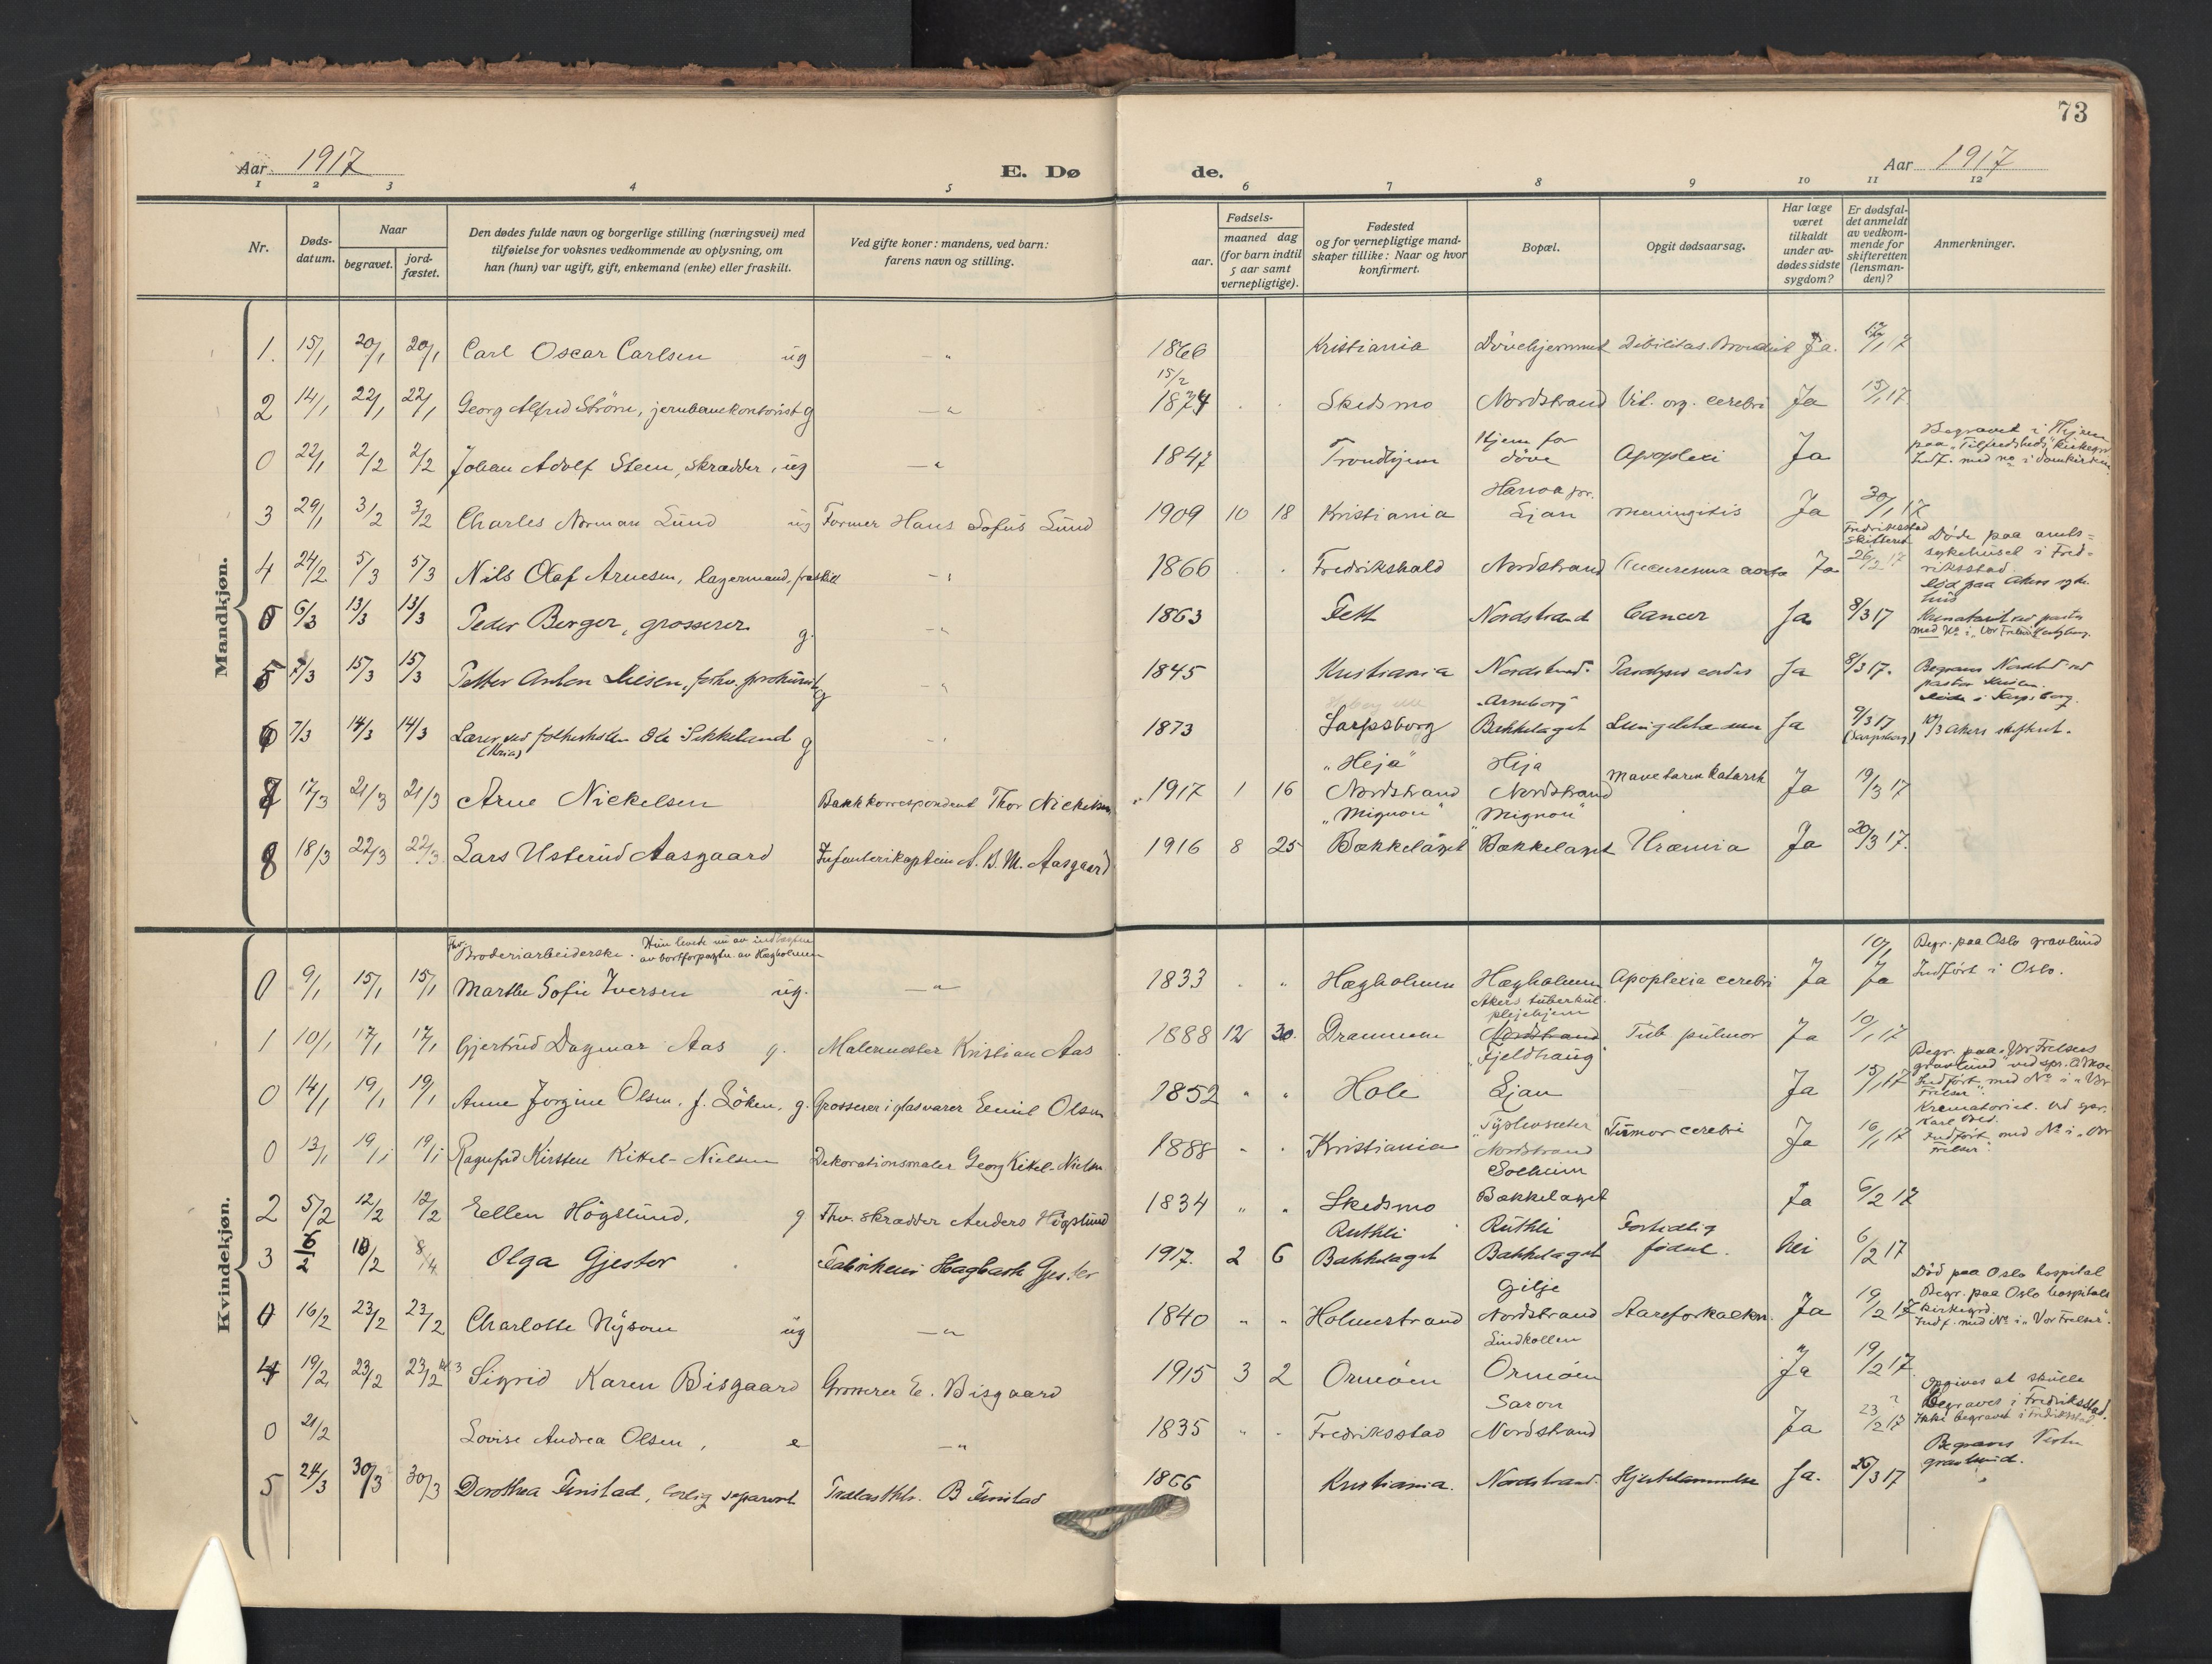 73
Aar 1917 E. Dø de. Aar 1917
1 2 3 4 5 6 7 8 9 10 11 12
Nr. Døds-datum. Naar begravet. jord-fæstet. Den dødes fulde navn og borgerlige stilling (næringsvei) med tilføielse for voksnes vedkommende av oplysning, om han (hun) var ugift, gift, enkemand (enke) eller fraskilt. Ved gifte koner: mandens, ved barn: farens navn og stilling. Fødsels- aar. maaned dag (for barn indtil 5 aar samt vernepligtige). Fødested og for vernepligtige mand-skaper tillike: Naar og hvor konfirmert. Bopæl. Opgit dødsaarsag. Har læge været tilkaldt under av-dødes sidste sygdom? Er dødsfal-det anmeldt av vedkom-mende for skifteretten (lensman-den)? Anmerkninger.
Mandkjøn.
1. 15/1 20/1 20/1 Carl Oscar Carlsen ug — " 1866 Kristiania Døvehjemmet Debilitas. Ja. 17/1 17
15/2
2 14/1 22/1 22/1 Georg Alfred Strøm, jernbanekontorist g — " 1874 Skedsmo Nordstrand Vit. org. cerebri Ja 15/1 17.
0 22/1 2/2 2/2 Johan Adolf Steen, skrædder, ug — " 1847 Trondhjem Hjem for døve Apoplexi Ja Begravet i Thjem paa "Tilfredsheds" kirkegr. Indf. med no i Domkirken
3 29/1 3/2 3/2 Charles Norman Lund ug Former Hans Sofus Lund 1909 10 18 Kristiania Ljan meningitis Ja 30/1 17
4 24/2 5/3 5/3 Nils Olaf Arnesen, lagermand, fraskilt — " 1866 Fredrikshald Nordstrand aorta Ja Fredriksstad skifteret 26/2 17 Døde paa amts=sykehuset i Fred=riksstad
5 6/3 13/3 13/3 Peder Berger, grosserer g. — " 1863 Fett Nordstrand Cancer Ja 8/3 17 død paa Akers syke hus med No i "Vor Frelser
5 7/3 15/3 15/3 Petter Anton g — " 1845 Kristiania Nordstrand. Paralysis cordis Ja 8/3 17. Begraves Nordstrand ved pastor
6 7/3 14/3 14/3 Lærer ved folkeskolen Ole Sekkeland g (Kria) — " 1873 Sarpsborg "Arneborg" Bækkelaget Ja 9/3 17 (Sarpsborg) Døde i Sarpsborg. 10/3 Akers skifteret.
7 17/3 21/3 21/3 Arne Nickelsen Bankkorrespondent Thor Nickelsen 1917 1 16 "Heja" Nordstrand Heja Nordstrand Mavetarmkatarrh Ja 19/3 17
8 18/3 22/3 22/3 Lars Usterud Aasgaard Infanterikaptein N. B. M. Aasgaard 1916 8 25 "Mignon" Bækkelaget "Mignon" Bækkelaget Uræmia Ja 20/3 17.
Kvindekjøn.
0 9/1 15/1 15/1 Fhv. Broderiarbeiderske. Hun levede nu av indtægten av bortforpagtn. av Hægholmen Marthe Sofie Iversen ug. — " 1833 " Hægholmen Hægholmen Apoplexia cerebri Ja 10/1 Ja Begr. paa Oslo gravlund Indført i Oslo.
1 10/1 17/1 17/1 Gjertrud Dagmar Aas g. Malermester Kristian Aas 1888 12 30. Drammen Akers tuberkul. plejehjem Nordstrand Tub pulmor Ja 10/1 17
0 14/1 19/1 19/1 Anne Jorgine Olsen. f. Löken, g. Grosserer i glasvarer Emil Olsen 1852 " " Hole "Fjeldhaug" Ljan Ja 15/1 17 Begr. paa "Vor Frelsers gravlund" ved spr. Indført med No i "Vor Frelser".
0 13/1 19/1 19/1 Ragnfrid Kirsten Kittel-Nielsen Dekorationsmaler Georg Kittel-Nielsen 1888 " " Kristiania Nordstrand Tumor cerebri Ja 16/1 17 Krematoriet. ved spr. Karl Indført med No i "Vor Frelser".
2 5/2 12/2 12/2 Ellen Högslund, g Fhv. skrædder Anders Högslund 1834 " " Skedsmo Solheim Bækkelaget Ja 6/2 17
3 6/2 10/2 8/4 Olga Gjester Hagbart Gjester 1917. 2 6 Ruthli Bækkelaget Ruthli Bækkelaget Fortidlig født. Nei 6/2 17
0 16/2 23/2 23/2 Charlotte Nysom ug — " 1840 " " Holmestrand Gilje Nordstrand Aareforkalkn. Ja 19/2 17 Död paa Oslo hospital Begr. paa Oslo hospitals kirkegrd. Indf. med No i "Vor Frelser".
4 19/2 23/2 23/2 kl 3 Sigrid Karen Bisgaard Grosserer E. Bisgaard 1915 3 2 Ormøen Lindkollen Ormøen Ja 19/2 17.
0 21/2 Lovise Andrea Olsen, e — " 1835 " " Fredriksstad Saron Nordstrand Ja 23/2 17 ? Opgives at skulle Begraves i Fredriksstad. Ikke begravet i Fredriksstad.
5 24/3 30/3 30/3 Dorothea Finstad, lovlig separert Trælasthdl. B Finstad 1866 Kristiania. Nordstrand. Hjertelammelse Ja. 26/3 17 Begraves Vestre gravlund.